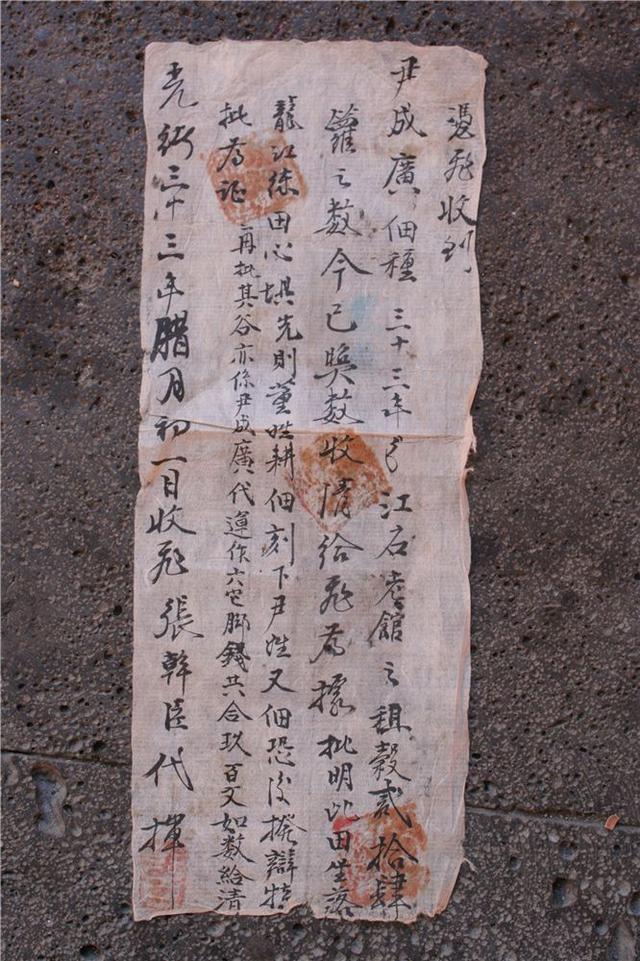 憑飛收到
尹成廣佃種三十三年江石老館之租穀貳拾肆
籮之數今已照數收清給飛為據批明此田坐落
龍江練田心垻先則董姓耕佃刻下尹姓又佃恐後擾辯特
批為証再批其谷亦係尹成廣代運作六屯腳錢共合玖百文如数給清
光緒三十三年臘月初一日收飛張幹臣代揮